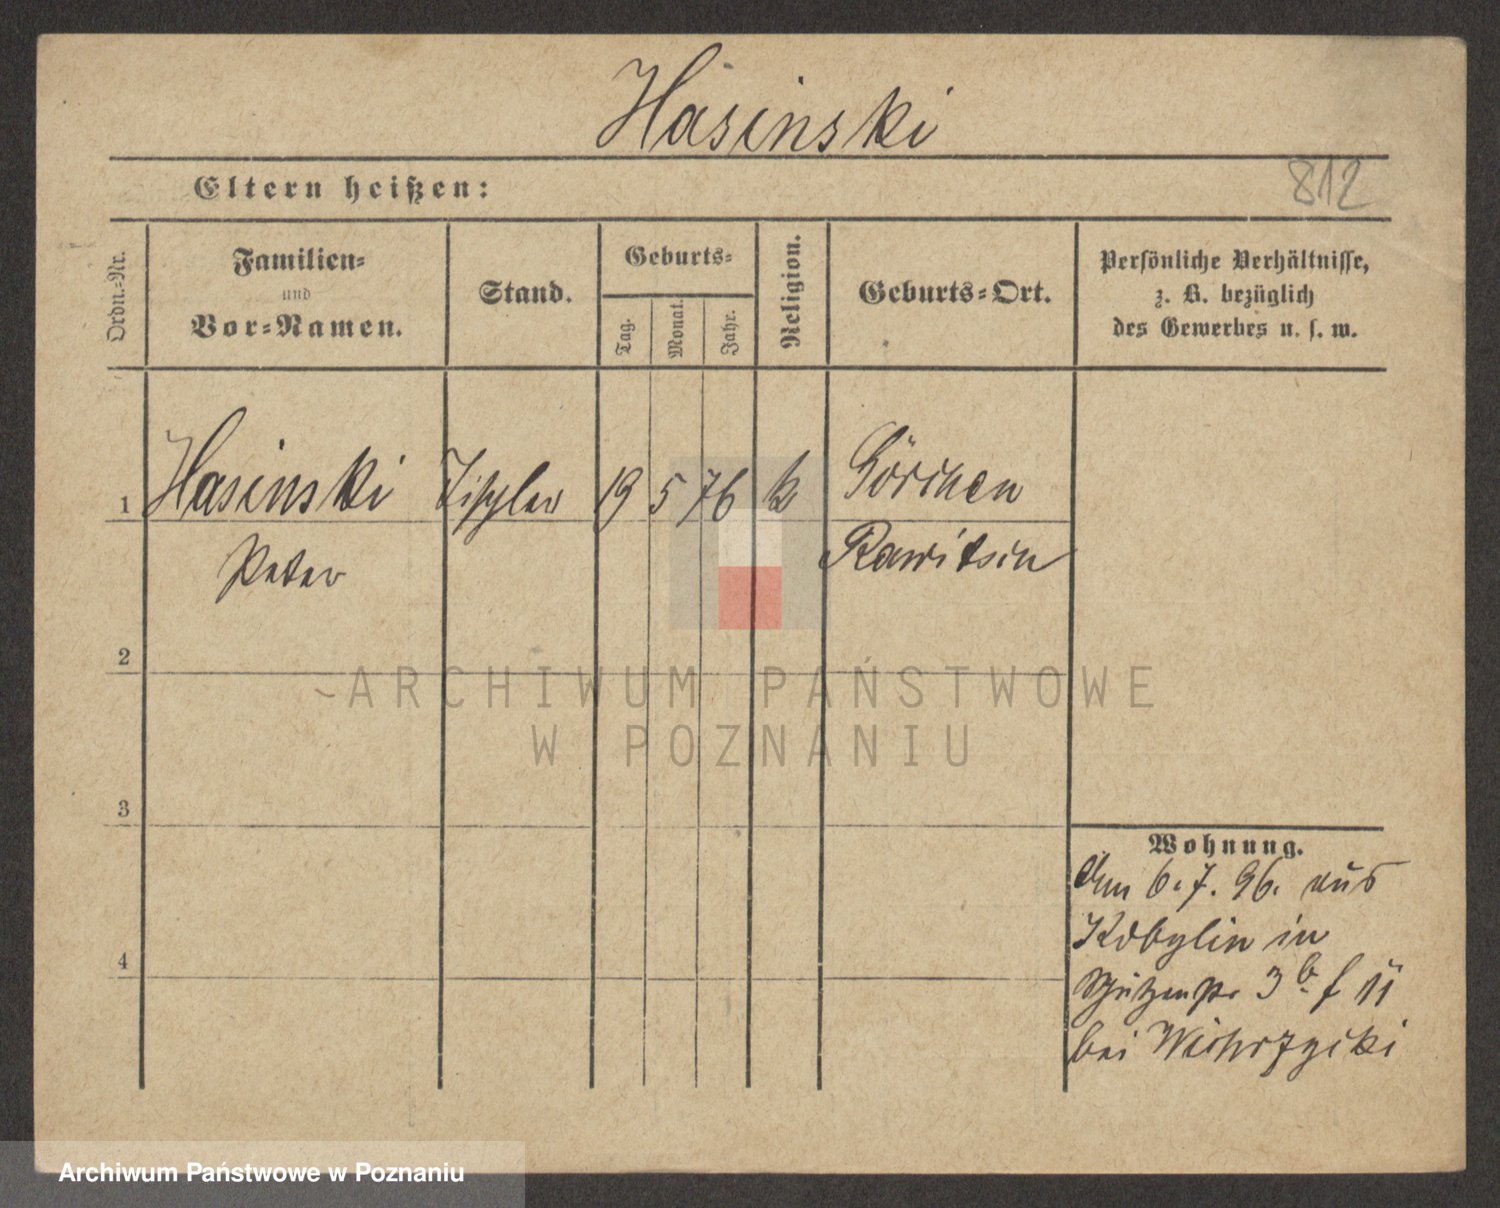 Hasinski
812
Eltern heißen:
Ordn.-Nr.
Familien-
und
Vor-Namen.
Stand.
Geburts-
Tag.
Monat.
Jahr.
Religion.
Geburts-Ort.
Persönliche Verhältnisse,
z. B. bezüglich
des Gewerbes u. s. w.
1 Hasinski Tischler 19 5 76 k Görchen
Peter Rawitsch
2
ARCHIWUM PAŃSTWOWE
W POZNANIU
3
Wohnung.
den 6. 7. 96. aus
Kobylin in
Schützenstr 3 b. f II
4
bei
Archiwum Państwowe w Poznaniu